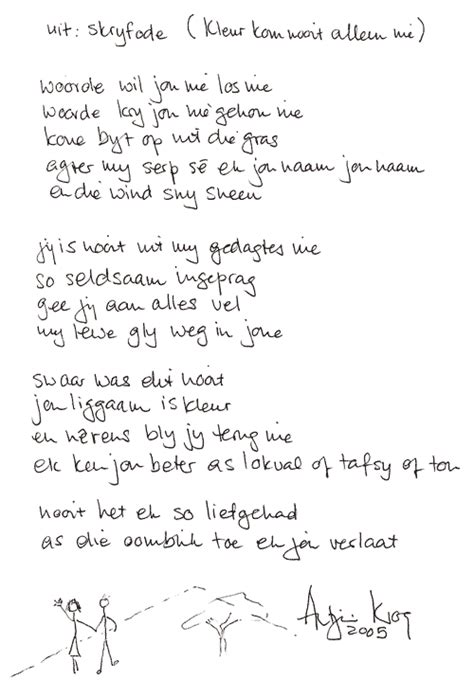 uit: skryfode (Kleur kom nooit alleen nie)
woorde wil jou nie los nie
woorde kry jou nie gehou nie
koue byt op uit die gras
agter my serp sê ek jou naam jou naam
en die wind sny sneeu
jy is nooit uit my gedagtes nie
so seldsaam ingeprag
gee jy aan alles vel
my lewe gly weg in joue
swaar was dit nooit
jou liggaam is kleur
en nêrens bly jy terug nie
ek ken jou beter as lokval of tafsy of tou
nooit het ek so liefgehad
as die oomblik toe ek jou verlaat
Antjie Krog
2005